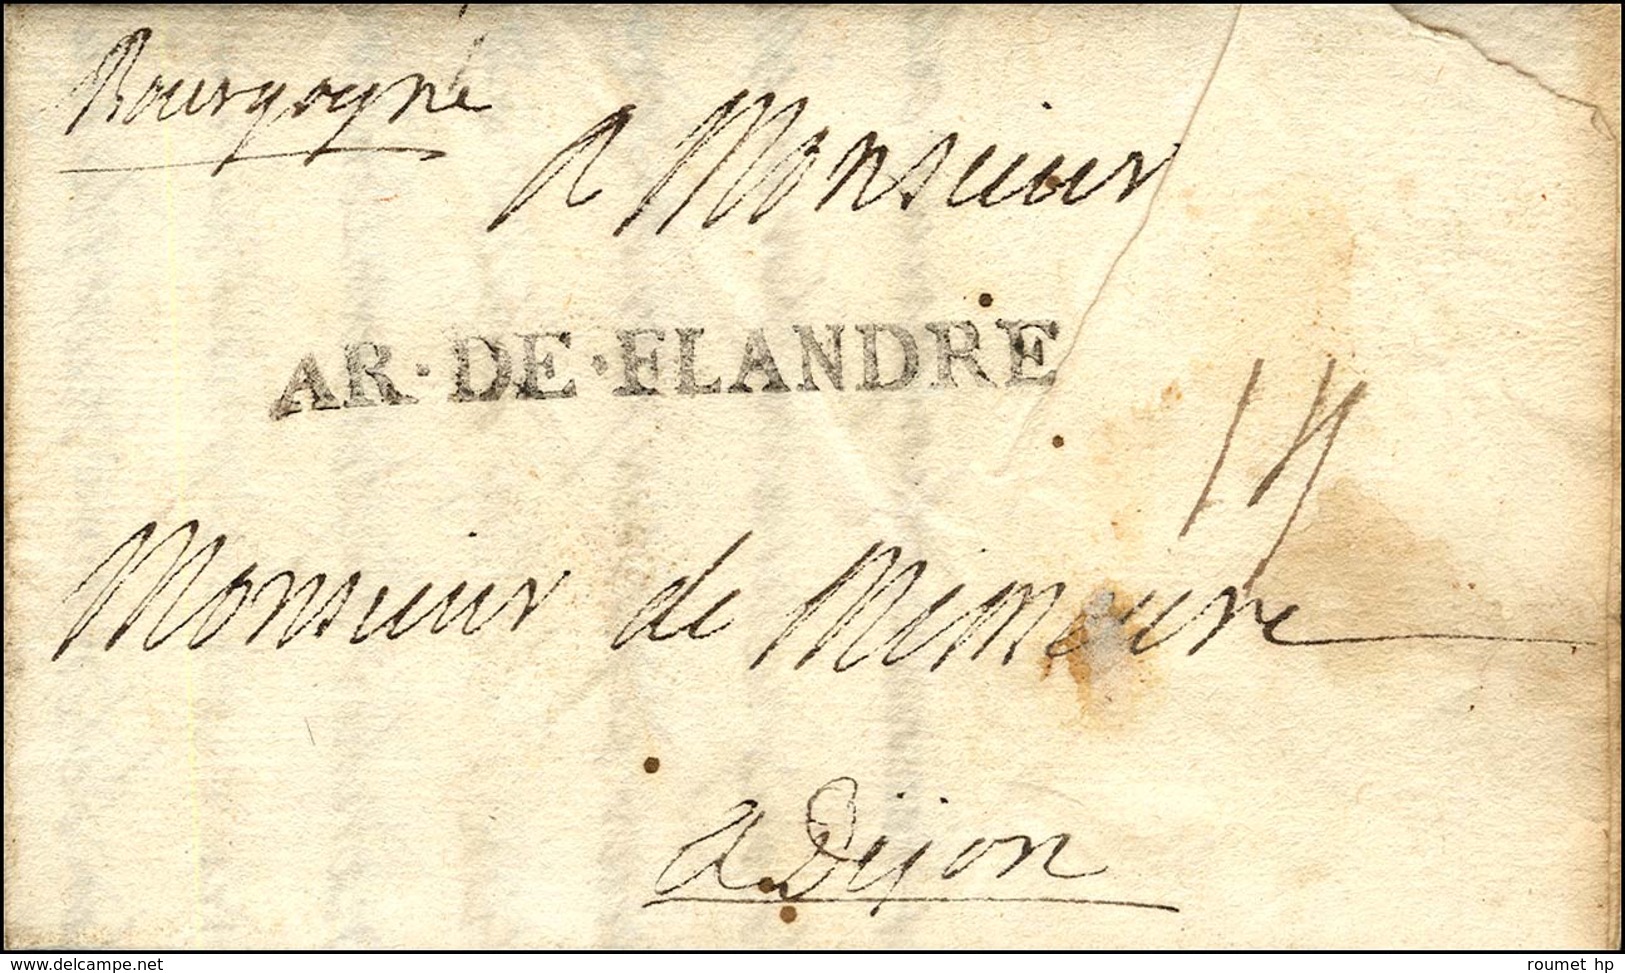 Bourgogne
a Monsieur
AR·DE·FLANDRE
Monsieur de Mimeure
a Dijon
www.delcampe.net
roumet hp